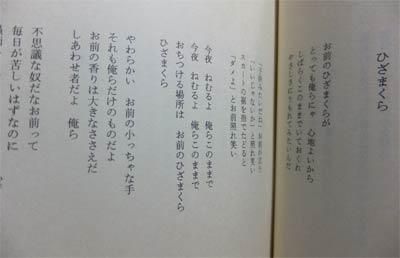 ひざまくら
お前のひざまくらが
とっても俺らにゃ 心地よいから
しばらくこのままでいておくれ
やさしさにうもれてみたいんだ
スカートの裾を指でたどると
「ダメよ」とお前照れ笑い
今夜 ねむるよ 俺らこのままで
今夜 ねむるよ 俺らこのままで
おちつける場所は お前のひざまくら
ひざまくら
やわらかい お前の小っちゃな手
それも俺らだけのものだよ
お前の香りは大きなささえだ
しあわせ者だよ 俺ら
不思議な奴だなお前って
毎日が苦しいはずなのに